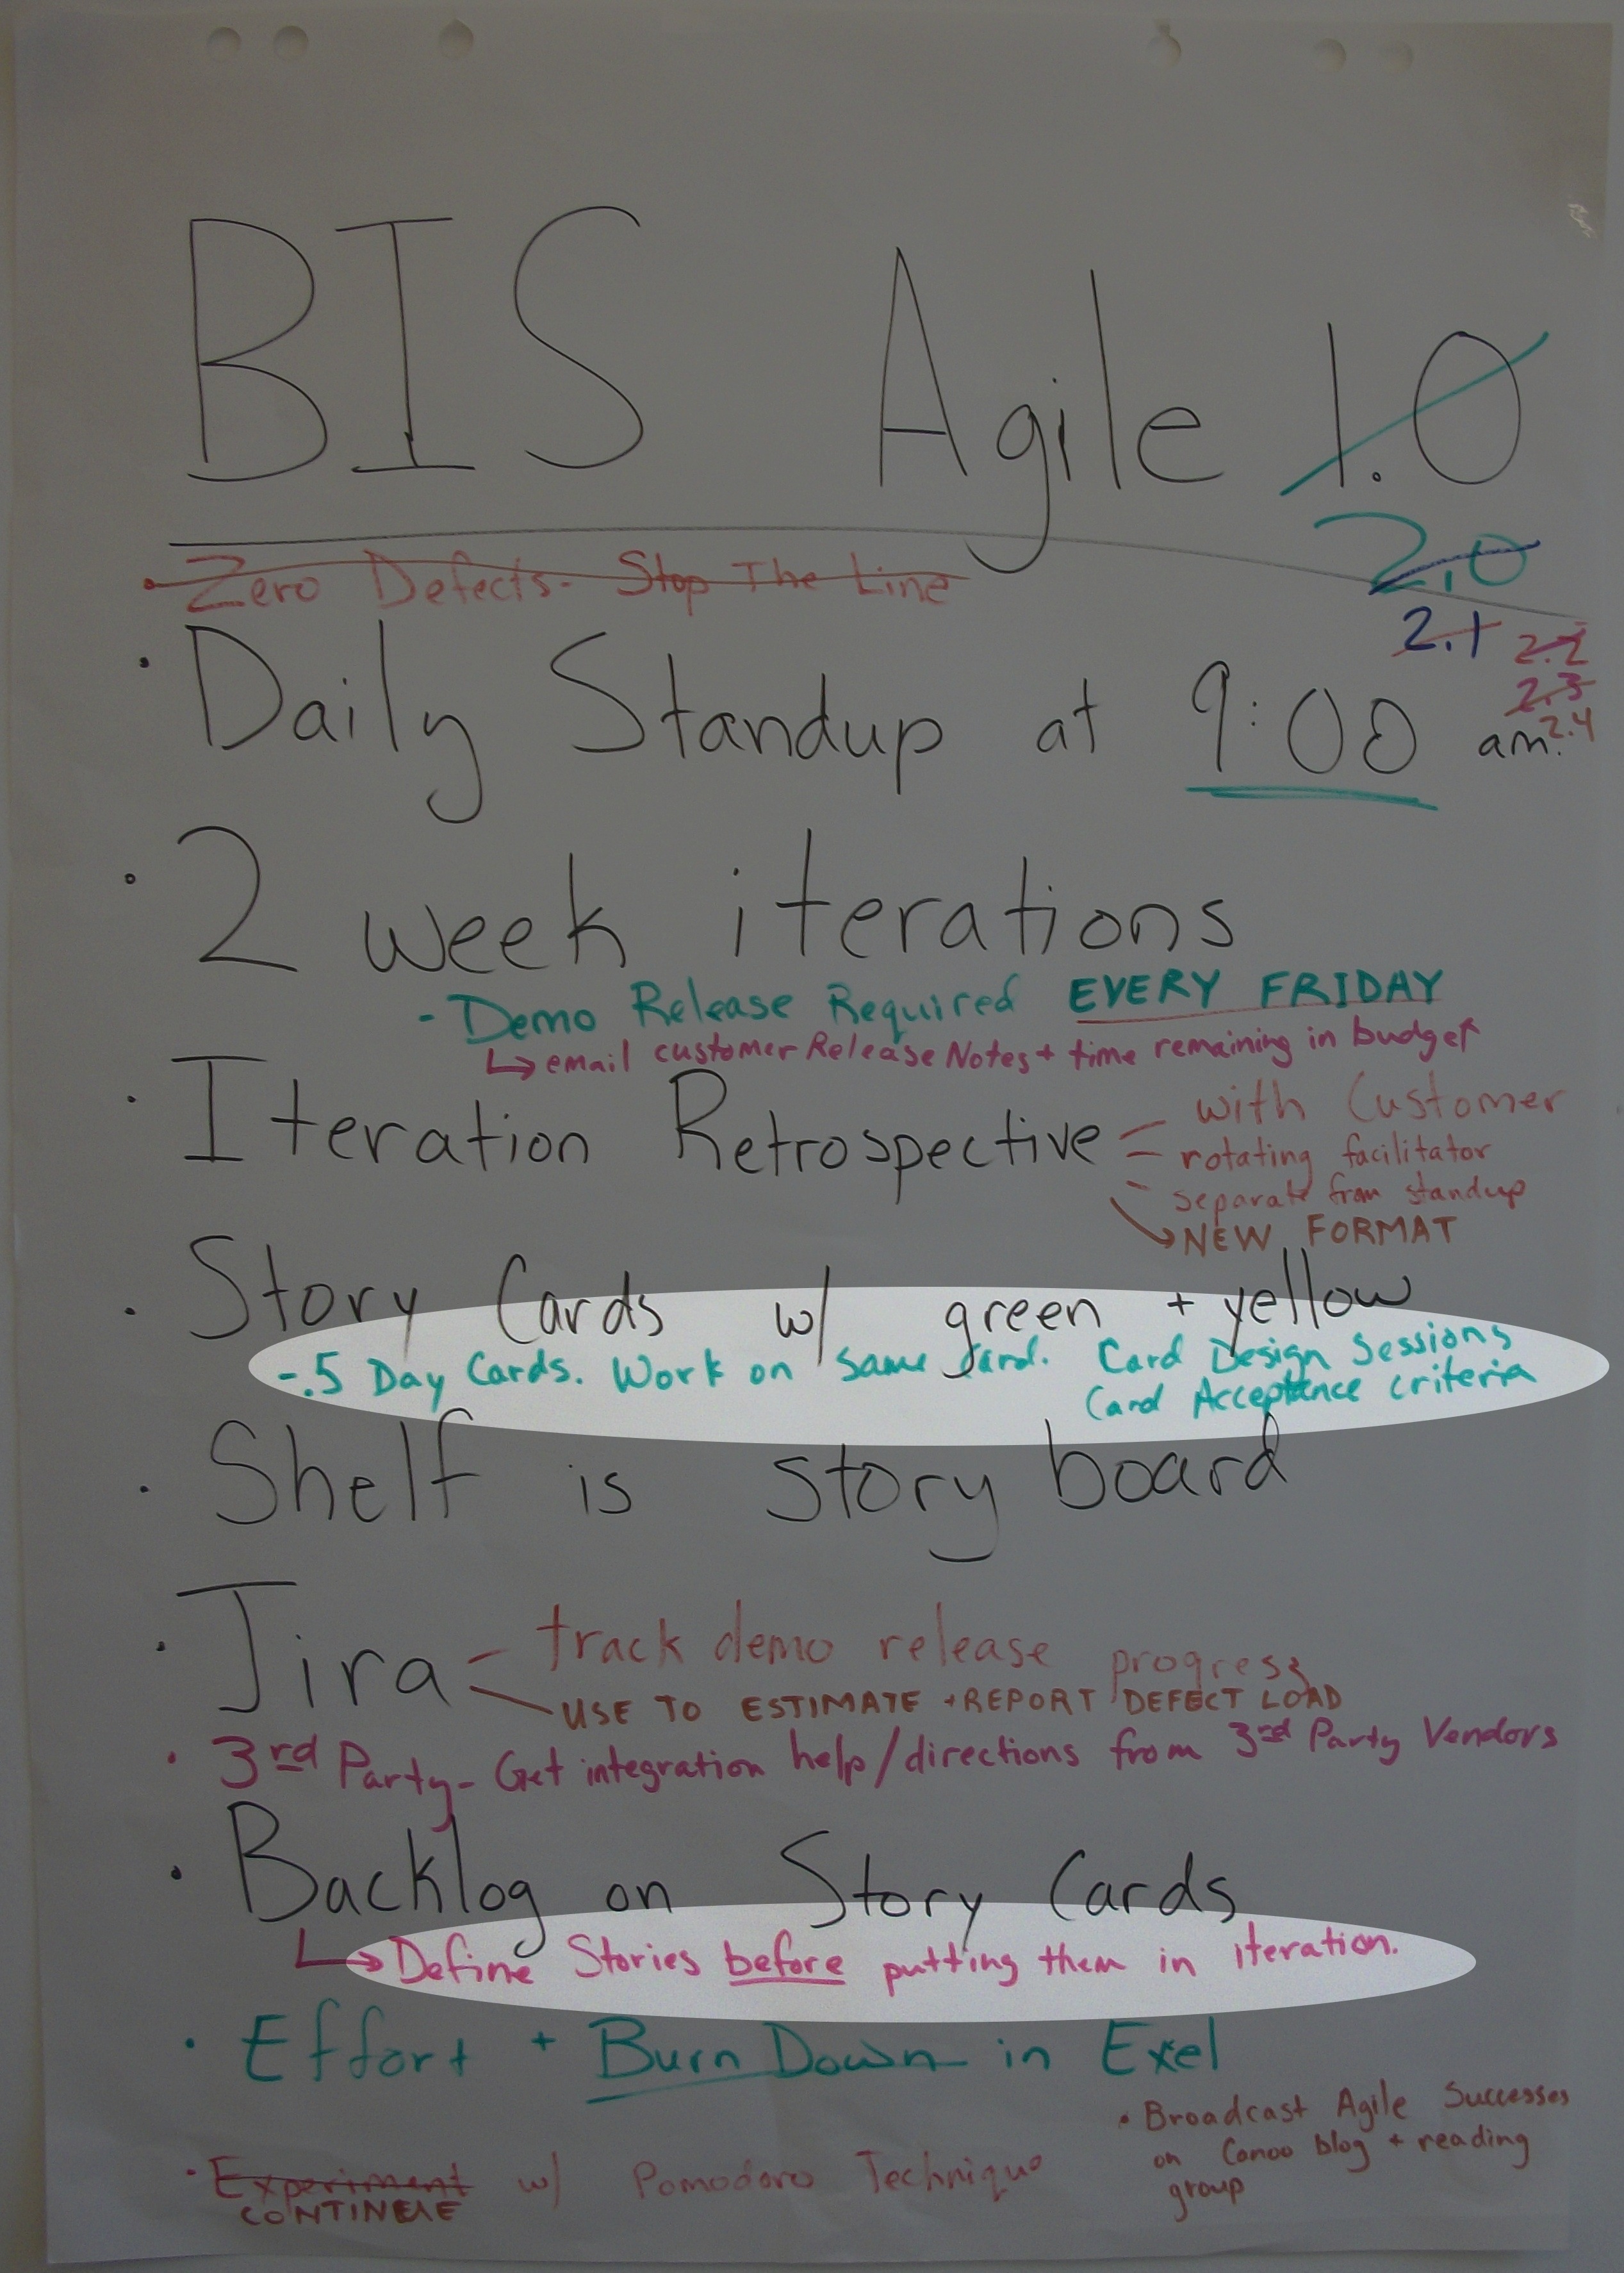 BIS Agile 1.0
2.0
2.1 2.2
2.3
2.4
• Zero Defects - Stop The Line
• Daily Standup at 9:00 am.
• 2 week iterations
- Demo Release Required EVERY FRIDAY
↳ email customer Release Notes + time remaining in budget
• Iteration Retrospective - with Customer
- rotating facilitator
- separate from standup
↘ NEW FORMAT
• Story Cards w/ green + yellow
- .5 Day Cards. Work on same card. Card Design Sessions
Card Acceptance criteria
• Shelf is story board
• Jira - track demo release progress
USE TO ESTIMATE + REPORT DEFECT LOAD
• 3rd Party - Get integration help/directions from 3rd Party Vendors
• Backlog on Story Cards
↳ Define Stories before putting them in iteration.
• Effort + Burn Down in Exel
• Broadcast Agile Successes
on Canoo blog + reading
group
• Experiment w/ Pomodoro Technique
CONTINUE